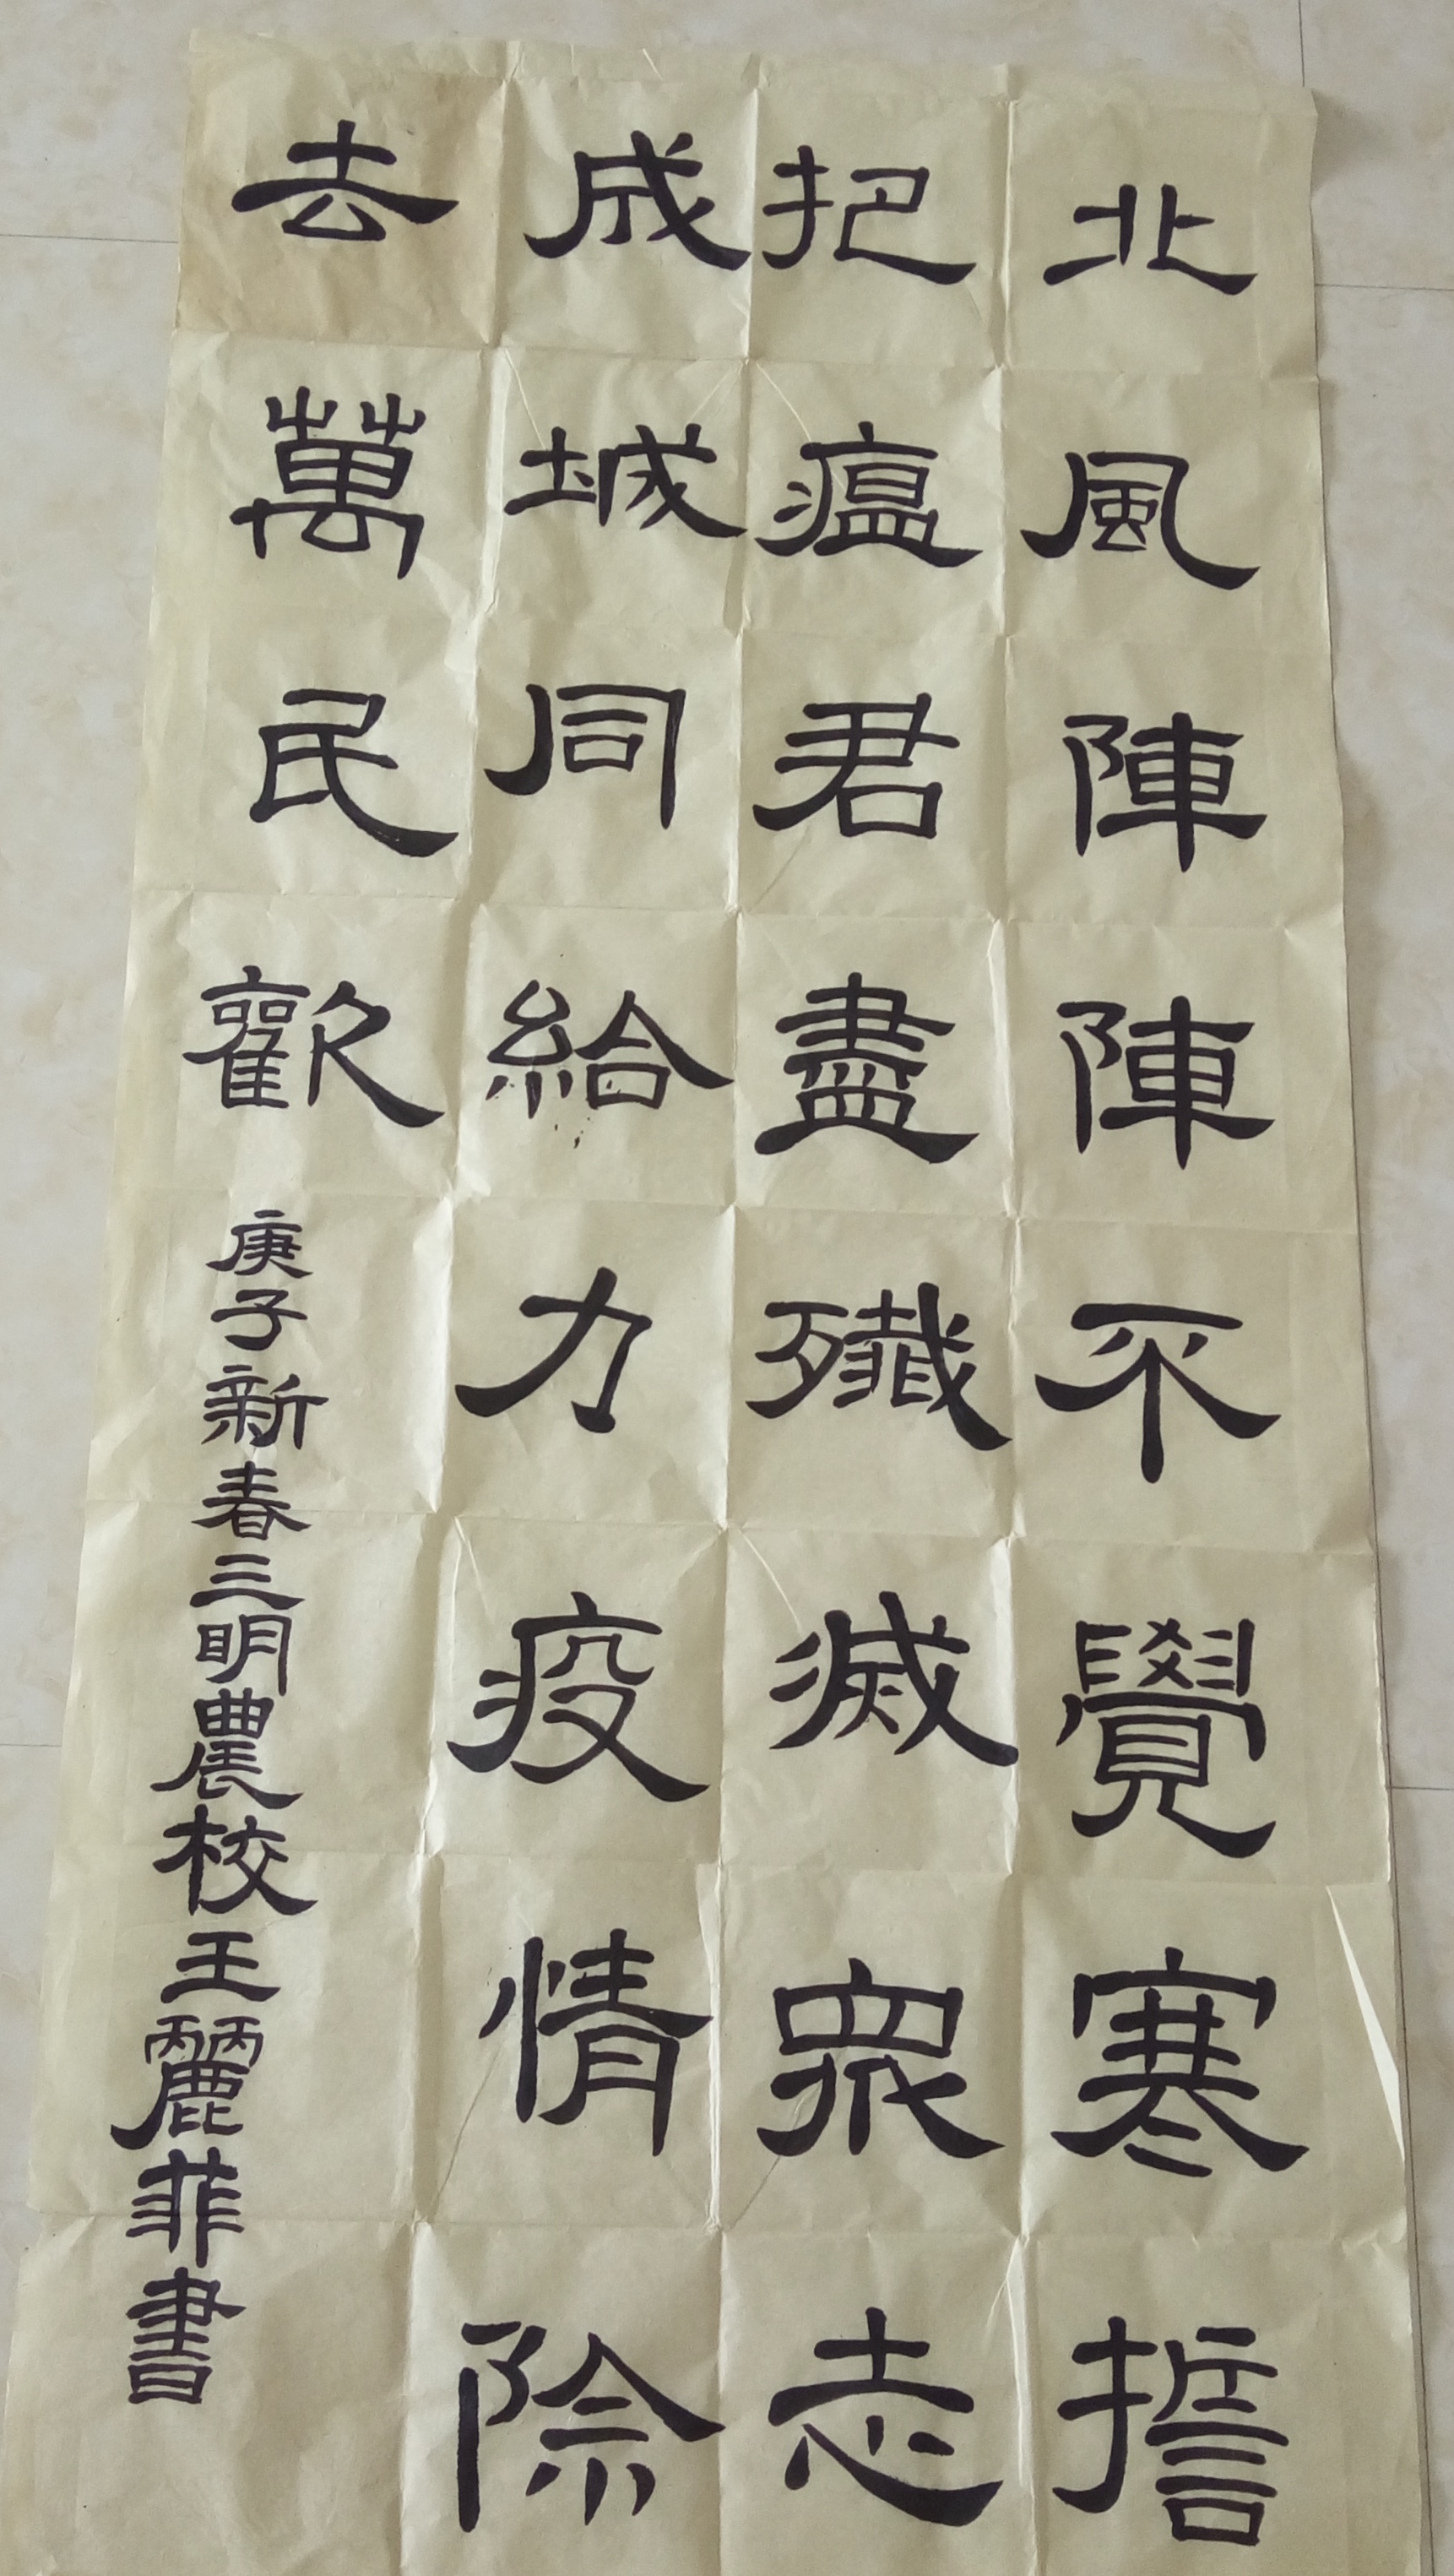 北風陣陣不覺寒誓
把瘟君盡殲滅眾志
成城同給力疫情除
去萬民歡
庚子新春三明農校王麗菲書